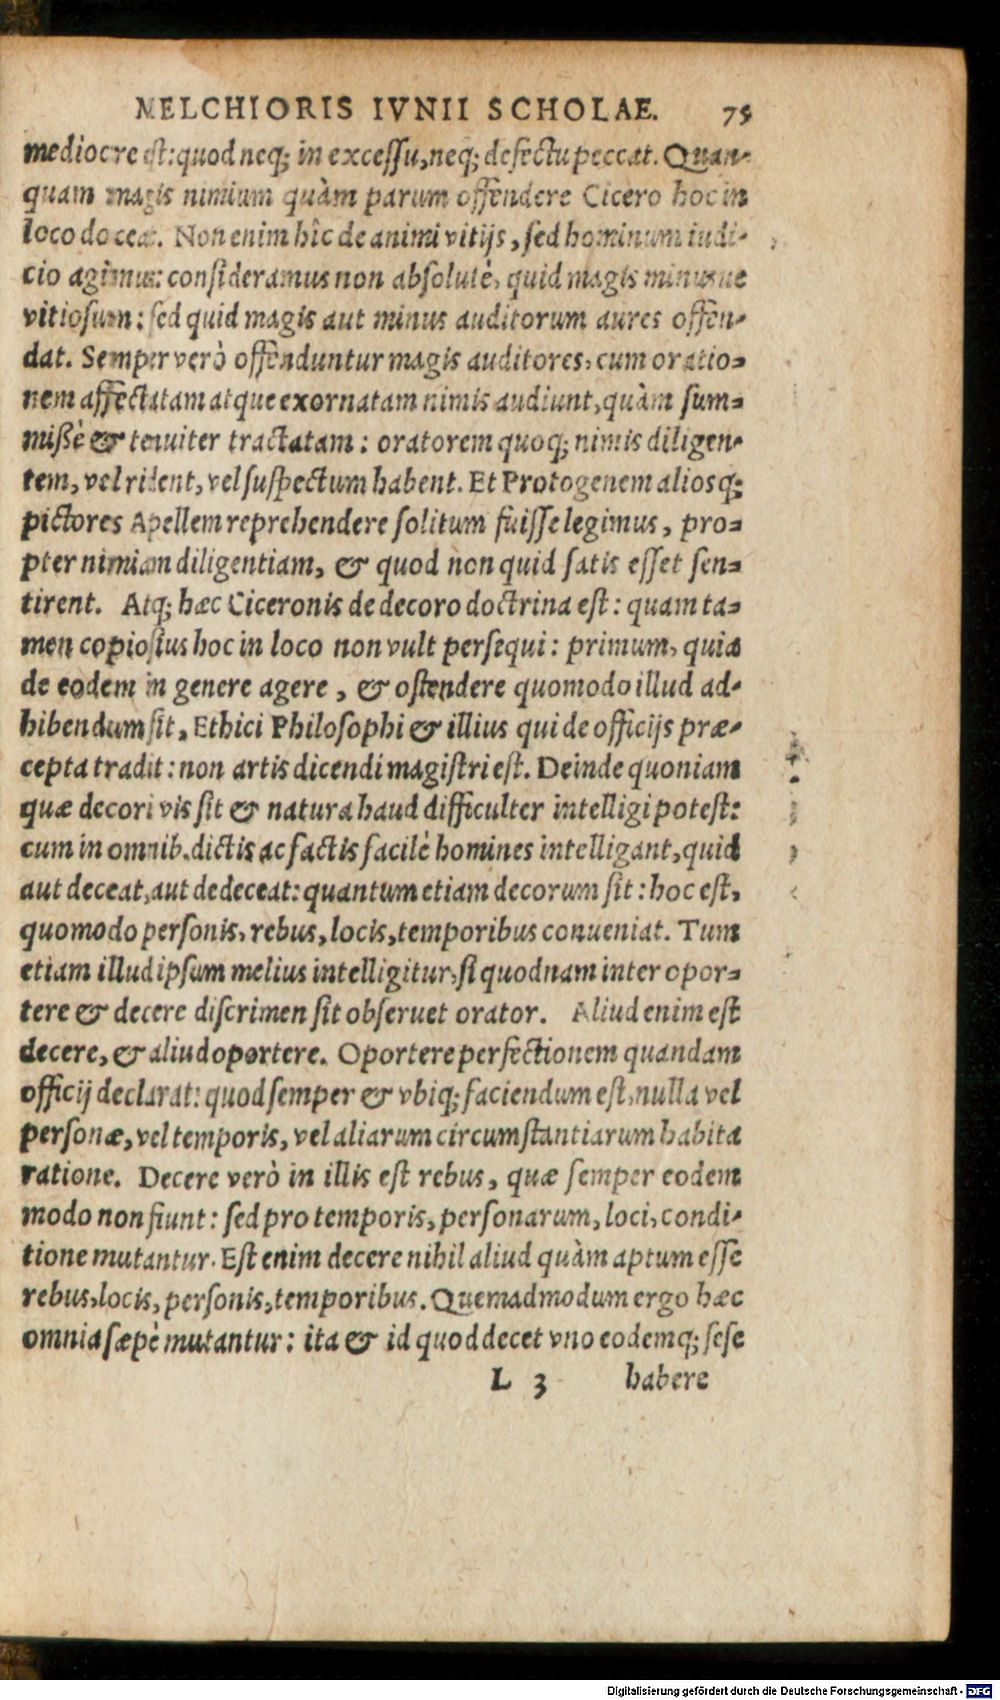 MELCHIORIS IVNII SCHOLAE. 75
mediocre est: quod neq; in excessu, neq; defectu peccat. Quan-
quam magis nimium quàm parum offendere Cicero hoc in
loco doceat. Non enim hîc de animi vitijs, sed hominum iudi-
cio agimus: consideramus non absolutè, quid magis minusue
vitiosum: sed quid magis aut minus auditorum aures offen-
dat. Semper verò offenduntur magis auditores, cum oratio-
nem affectatam atque exornatam nimis audiunt, quàm sum-
mißè & tenuiter tractatam: oratorem quoq; nimis diligen-
tem, vel rident, vel suspectum habent. Et Protogenem aliosq;
pictores Apellem reprehendere solitum fuisse legimus, pro-
pter nimiam diligentiam, & quod non quid satis esset sen-
tirent. Atq; hæc Ciceronis de decoro doctrina est: quam ta-
men copiosius hoc in loco non vult persequi: primum, quia
de eodem in genere agere, & ostendere quomodo illud ad-
hibendum sit, Ethici Philosophi & illius qui de officijs præ-
cepta tradit: non artis dicendi magistri est. Deinde quoniam
quæ decori vis sit & natura haud difficulter intelligi potest:
cum in omnib. dictis ac factis facilè homines intelligant, quid
aut deceat, aut dedeceat: quantum etiam decorum sit: hoc est,
quomodo personis, rebus, locis, temporibus conueniat. Tum
etiam illud ipsum melius intelligitur, si quodnam inter opor-
tere & decere discrimen sit obseruet orator. Aliud enim est
decere, & aliud oportere. Oportere perfectionem quandam
officij declarat: quod semper & vbiq; faciendum est, nulla vel
personæ, vel temporis, vel aliarum circumstantiarum habita
ratione. Decere verò in illis est rebus, quæ semper eodem
modo non fiunt: sed pro temporis, personarum, loci, condi-
tione mutantur. Est enim decere nihil aliud quàm aptum esse
rebus, locis, personis, temporibus. Quemadmodum ergo hæc
omnia sæpè mutantur: ita & id quod decet vno eodemq; sese
L 3 habere
Digitalisierung gefördert durch die Deutsche Forschungsgemeinschaft - DFG